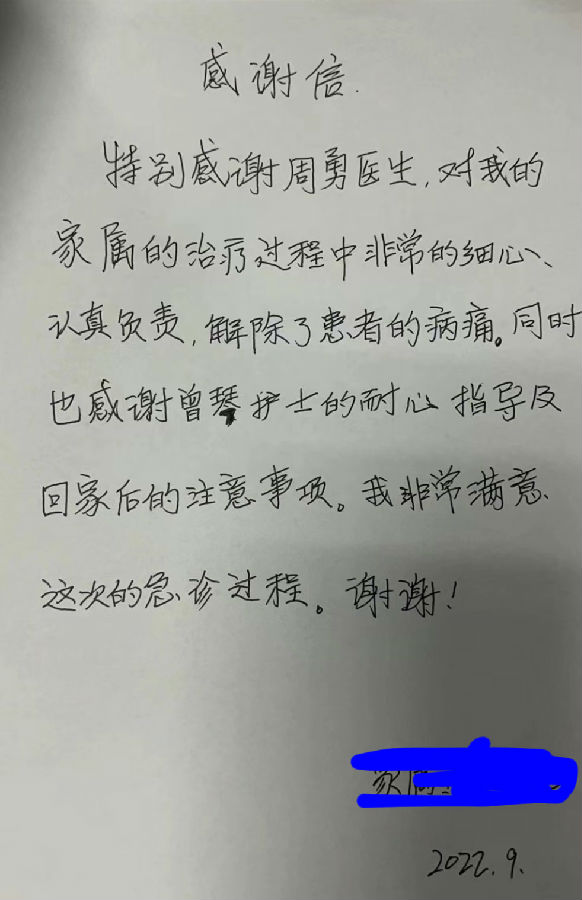 感谢信.
特别感谢周勇医生,对我的
家属的治疗过程中非常的细心、
认真负责,解除了患者的病痛。同时
也感谢曾琴护士的耐心指导及
回家后的注意事项。我非常满意、
这次的急诊过程。谢谢!
家属:
2022.9.